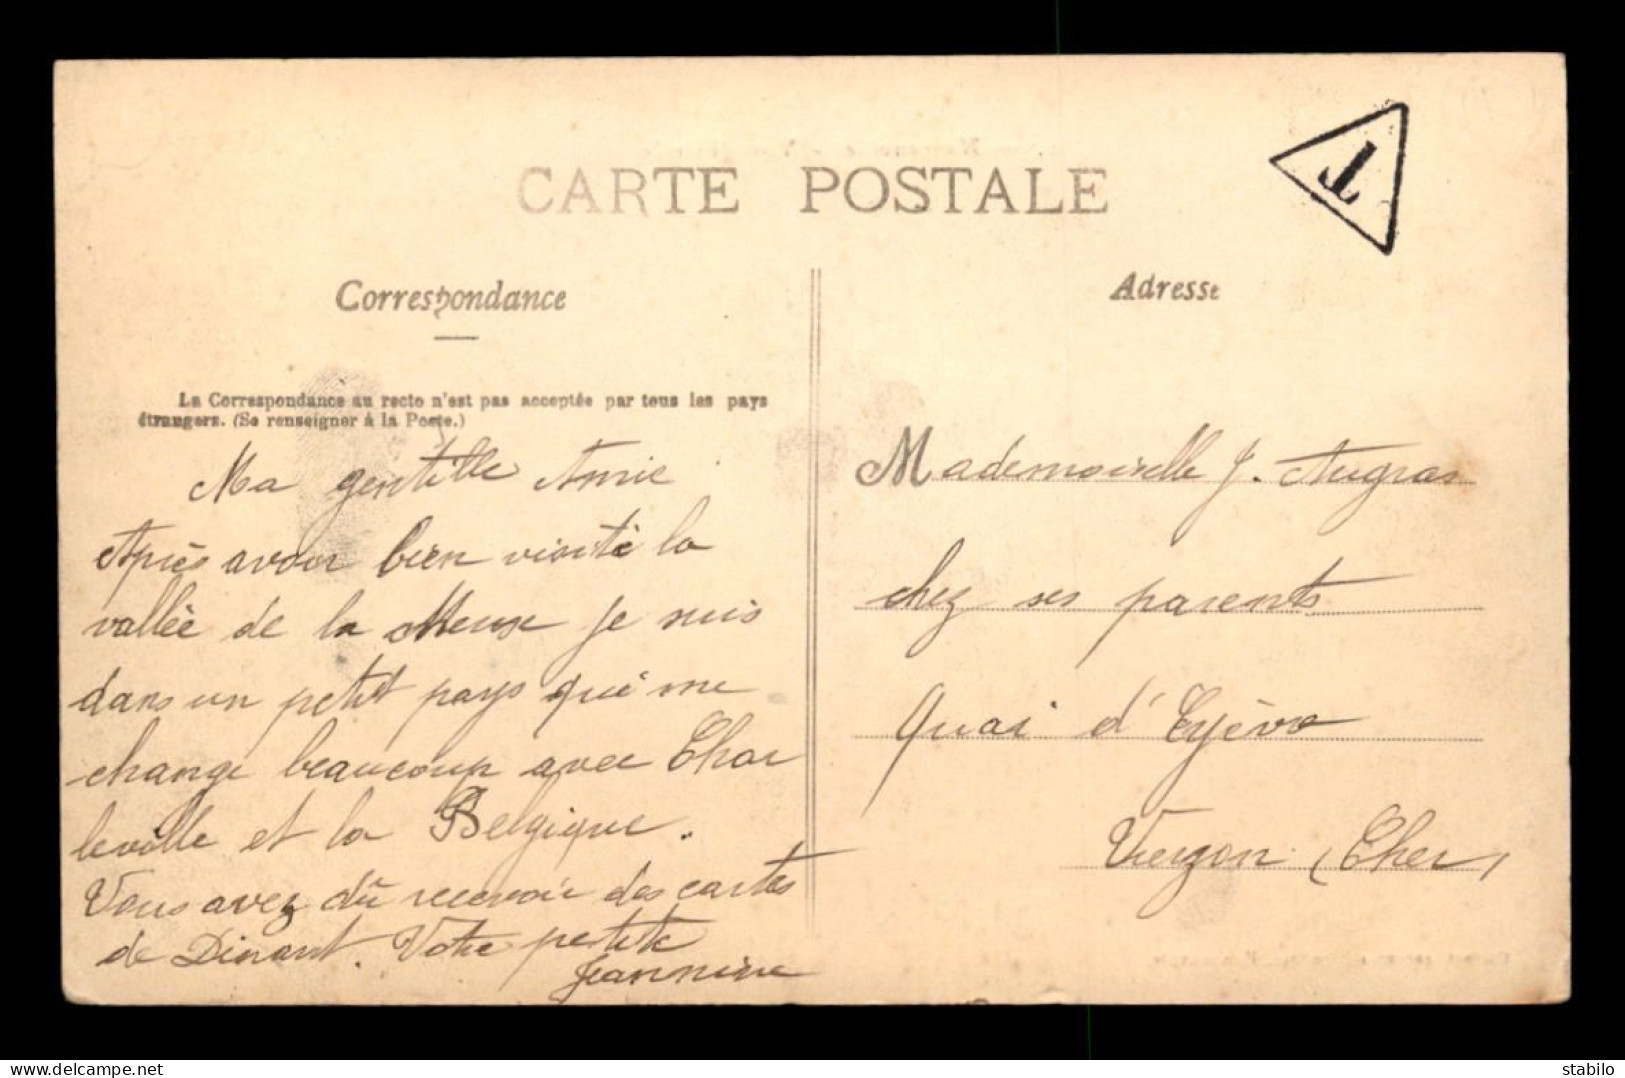 CARTE POSTALE
T
Correspondance
Adresse
La Correspondance au recto n'est pas acceptée par tous les pays
étrangers. (Se renseigner à la Poste.)
Ma gentille Amie
Après avoir bien visité la
vallée de la Meuse je suis
dans un petit pays qui me
change beaucoup avec Char
leville et la Belgique.
Vous avez dû recevoir des cartes
de Dinant. Votre petite
Jeannine
Mademoiselle J. Augras
chez ses parents
Quai d'Eyèvre
Vierzon (Cher)
delcampe.net
stabilo